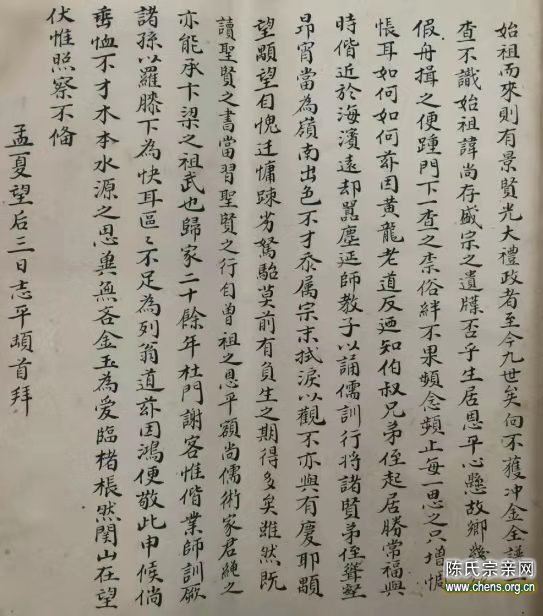 始祖而來則有景賢光大禮政者至今九世矣向不獲沖金全譜一
查不識始祖諱尚存盛宗之遺牒否乎生居恩平心懸故鄉幾
假舟揖之便踵門下一查之柰俗絆不果頻念頻止每一思之只增悵
悵耳如何如何茲因黃龍老道反廻知伯叔兄弟侄起居勝常福與
時偕近於海濱遠却嚣塵延師教子以誦儒訓行將諸賢弟侄聳壑
昂霄當為嶺南出色不才忝属宗末拭淚以觀不亦與有慶耶顒
望顒望自愧迂慵踈劣駑駘莫前有負生之期得多矣雖然既
讀聖賢之書當習聖賢之行自曾祖之恩平額尚儒術家君純之
亦能承卞梁之祖武也歸家二十餘年杜門謝客惟偕業師訓厥
諸孫以羅膝下為快耳區ミ不足為列翁道茲因鴻便敬此申候倘
垂恤不才木本水源之思兾無吝金玉為愛臨楮悵然閨山在望
伏惟照察不俻
孟夏望后三日志平頓首拜
陈氏宗亲网
www.chens.org.cn